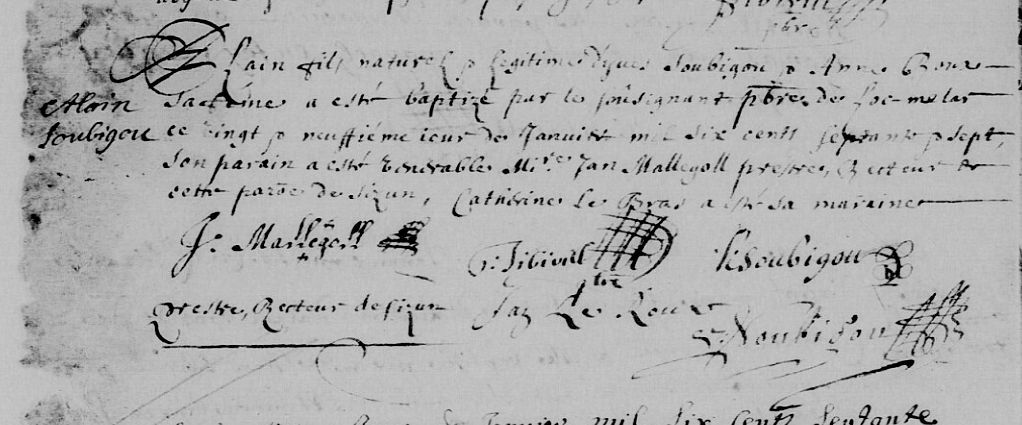 Alain
Soubigou
Alain fils naturel & legitime d'yves Soubigou & Anne Roux
sa feme a esté baptizé par le soussignant pbre de Loc melar
ce vingt & neuffiéme iour de Janvier mil six cents septante & sept,
son parain a esté venerable Mire Jan Mallegoll prestre, Recteur de
cette paroe de Sizun, Catherine Le Bras a esté sa maraine
J. Mallegoll
Soubigou
pbre
prestre, Recteur de sizun
Le Roux
Soubigou
mil six cents septante